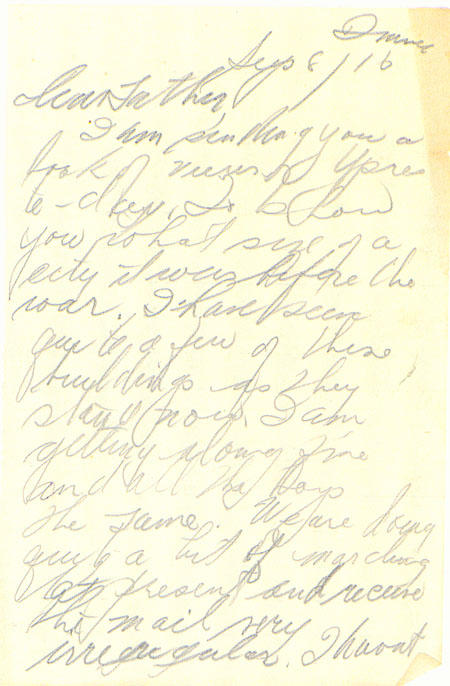 France
Sep 8/16
Dear Father
I am sending you a
book of views of Ypres
to-day, to show
you what size of a
city it was before the
war. I have seen
quite a few of these
buildings as they
stand now. I am
getting along fine
and all the boys
the same. We are doing
quite a bit of marching
at present and receive
the mail very
irregular. I havent